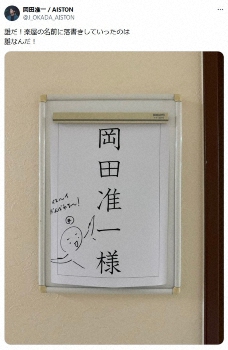 岡田准一 / AISTON
@J_OKADA_AISTON
誰だ！楽屋の名前に落書きしていったのは
誰なんだ！
岡田准一様